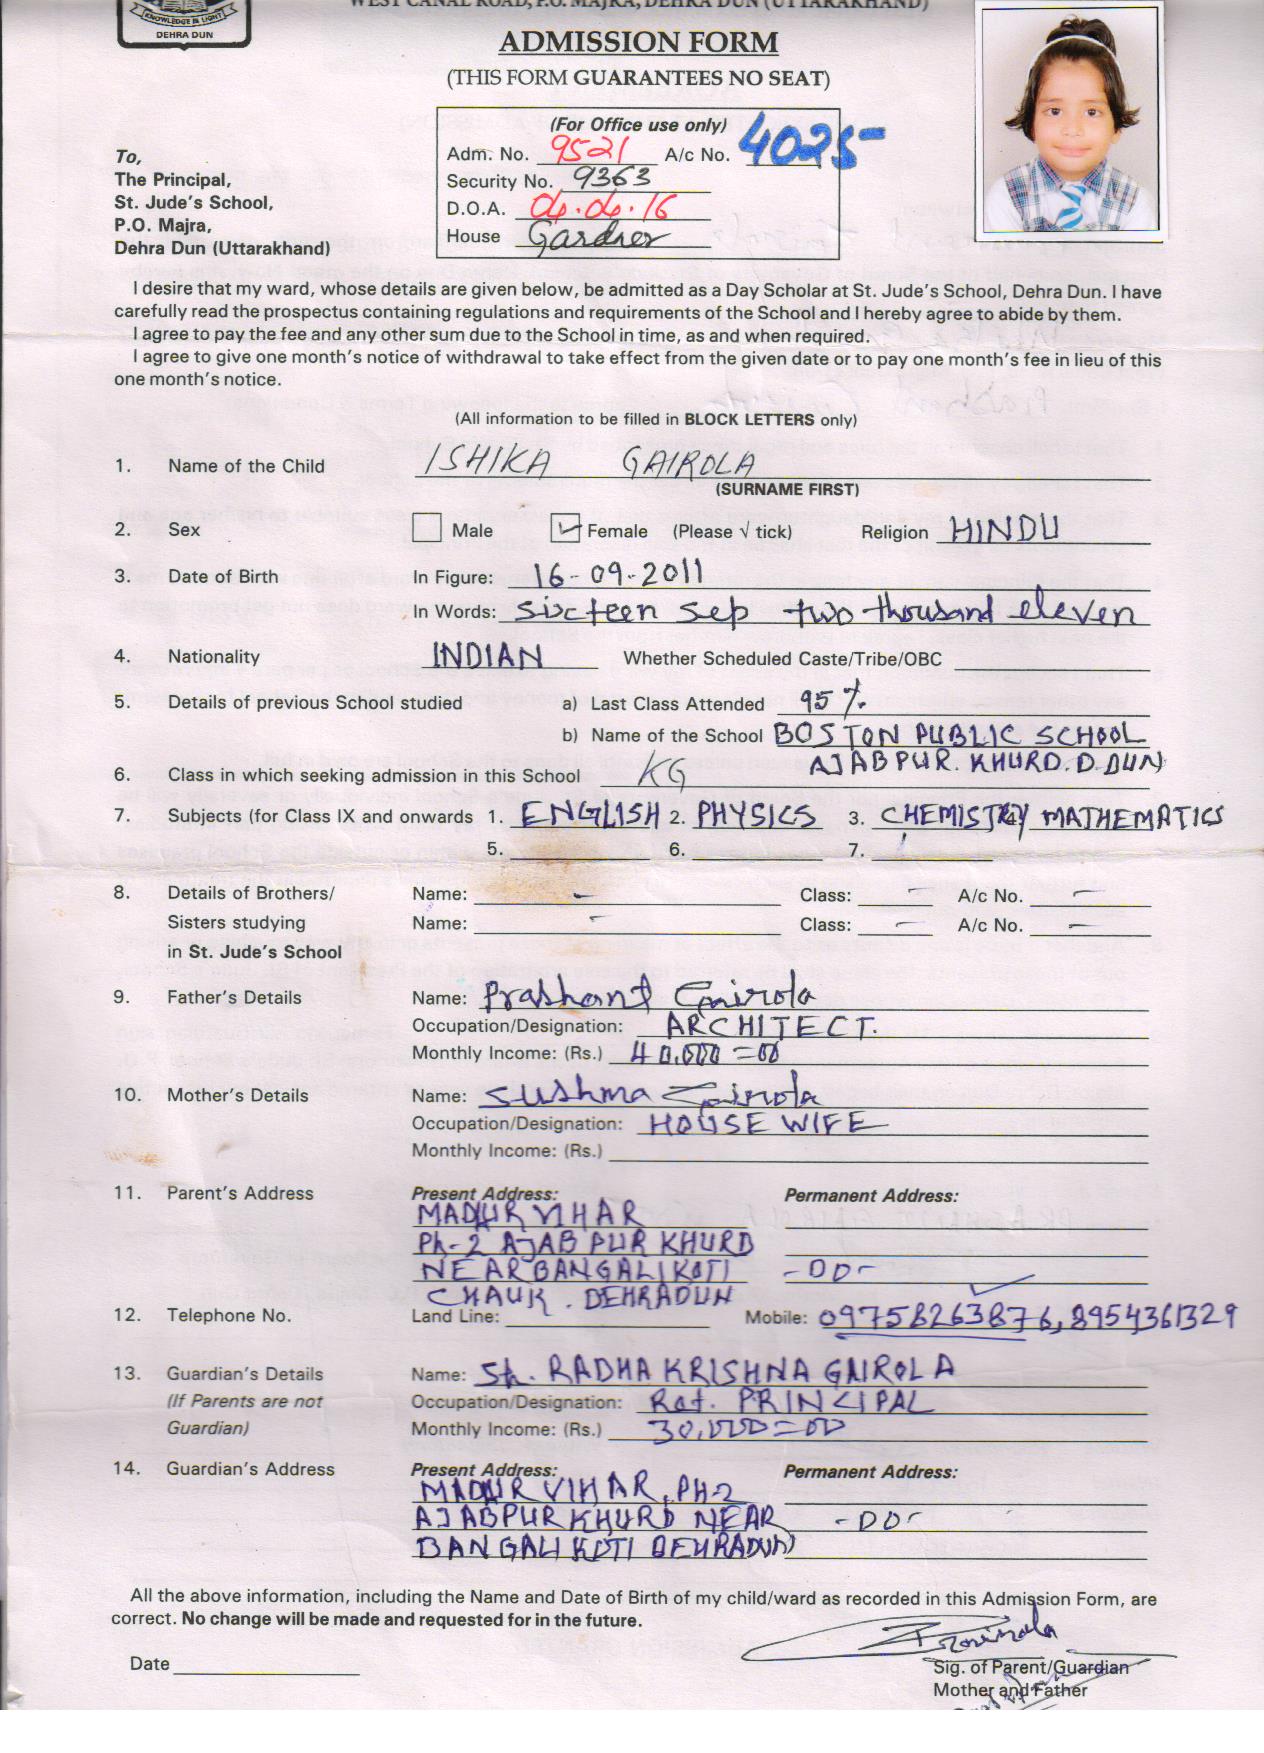 KNOWLEDGE IS LIGHT
DEHRA DUN
WEST CANAL ROAD, P.O. MAJRA, DEHRA DUN (UTTARAKHAND)
ADMISSION FORM
(THIS FORM GUARANTEES NO SEAT)
(For Office use only)
Adm. No. 9521 A/c No. 4025
Security No. 9363
D.O.A. 04.04.16
House Gardner
To,
The Principal,
St. Jude's School,
P.O. Majra,
Dehra Dun (Uttarakhand)
I desire that my ward, whose details are given below, be admitted as a Day Scholar at St. Jude's School, Dehra Dun. I have
carefully read the prospectus containing regulations and requirements of the School and I hereby agree to abide by them.
I agree to pay the fee and any other sum due to the School in time, as and when required.
I agree to give one month's notice of withdrawal to take effect from the given date or to pay one month's fee in lieu of this
one month's notice.
(All information to be filled in BLOCK LETTERS only)
1. Name of the Child ISHIKA GAIROLA
(SURNAME FIRST)
2. Sex Male Female (Please √ tick) Religion HINDU
3. Date of Birth In Figure: 16-09-2011
In Words: sixteen sep two thousand eleven
4. Nationality INDIAN Whether Scheduled Caste/Tribe/OBC
5. Details of previous School studied a) Last Class Attended 95 %
b) Name of the School BOSTON PUBLIC SCHOOL
AJABPUR. KHURD. D. DUN
6. Class in which seeking admission in this School KG
7. Subjects (for Class IX and onwards 1. ENGLISH 2. PHYSICS 3. CHEMISTRY 4. MATHEMATICS
5. 6. 7.
8. Details of Brothers/ Name: - Class: - A/c No. -
Sisters studying Name: - Class: - A/c No. -
in St. Jude's School
9. Father's Details Name: Prashant Gairola
Occupation/Designation: ARCHITECT.
Monthly Income: (Rs.) 40,000=00
10. Mother's Details Name: Sushma Gairola
Occupation/Designation: HOUSE WIFE
Monthly Income: (Rs.)
11. Parent's Address Present Address: Permanent Address:
MADUR VIHAR
Ph-2 AJAB PUR KHURD
NEAR BANGALI KOTI -DO-
CHAUK. DEHRADUN
12. Telephone No. Land Line: Mobile: 09758263876, 8954361329
13. Guardian's Details Name: Sh. RADHA KRISHNA GAIROLA
(If Parents are not Occupation/Designation: Ret. PRINCIPAL
Guardian) Monthly Income: (Rs.) 30,000=00
14. Guardian's Address Present Address: Permanent Address:
MADUR VIHAR, PH-2
AJABPUR KHURD NEAR -DO-
BANGALI KOTI DEHRADUN
All the above information, including the Name and Date of Birth of my child/ward as recorded in this Admission Form, are
correct. No change will be made and requested for in the future.
Gairola
Date
Sig. of Parent/Guardian
Mother and Father